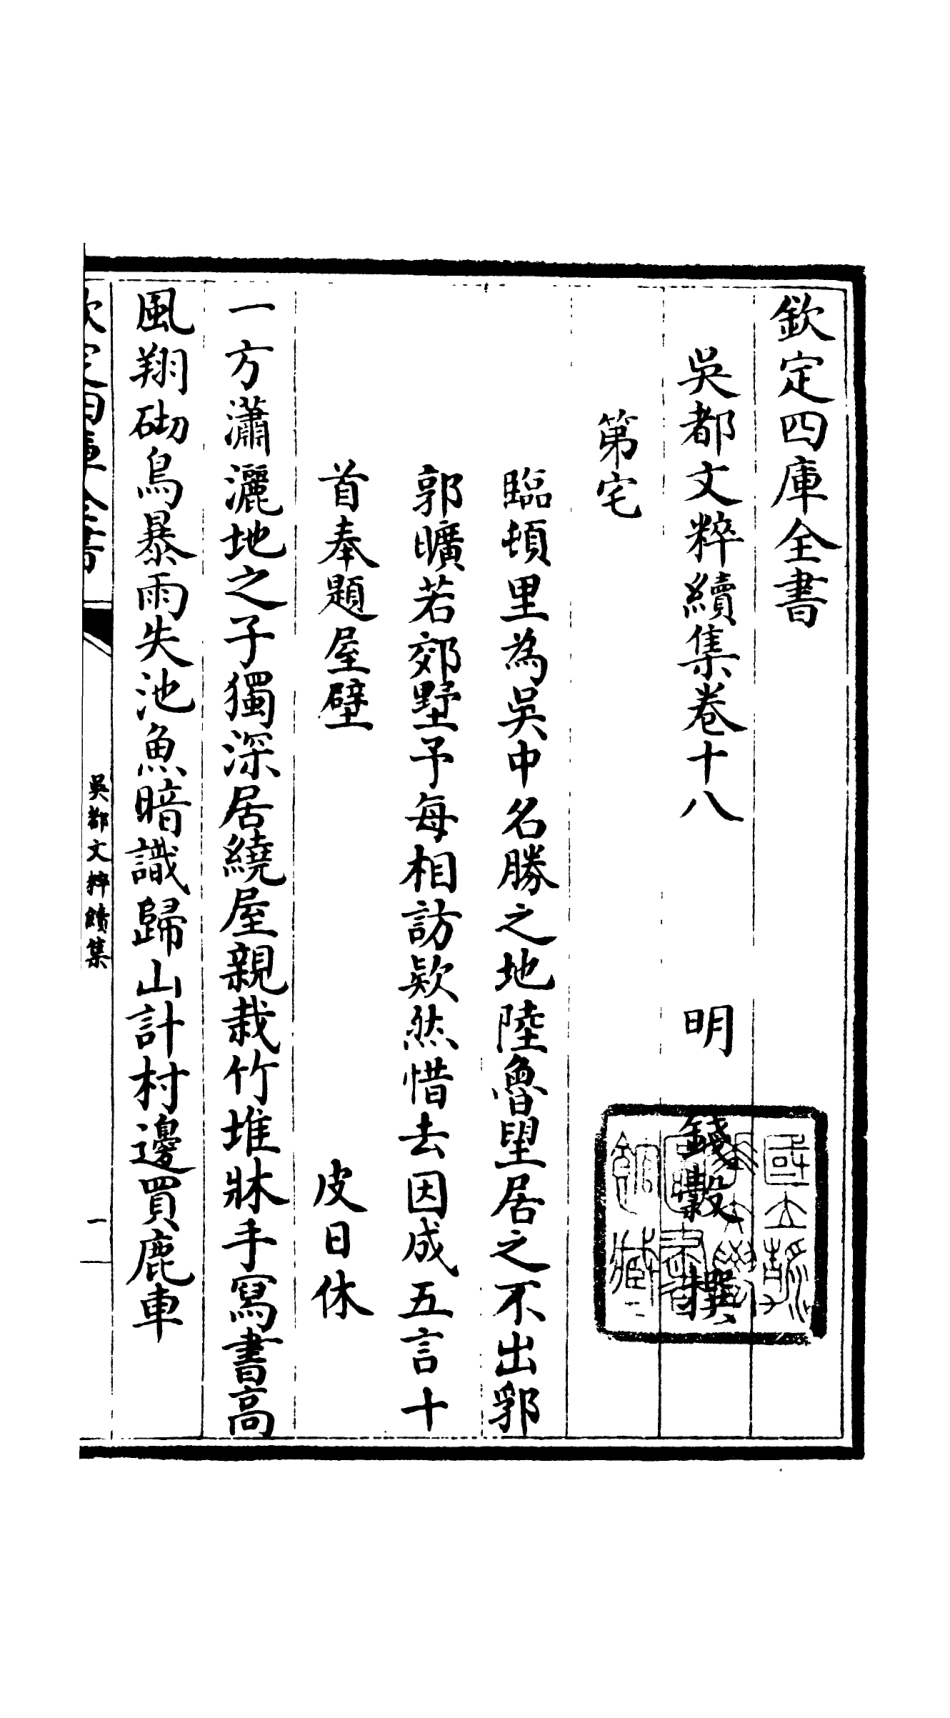 欽定四庫全書
吳都文粹續集卷十八 明 錢榖 撰
第宅
臨頓里為吳中名勝之地陸魯望居之不出郛
郭曠若郊墅予每相訪欵然惜去因成五言十
首奉題屋壁 皮日休
一方瀟灑地之子獨深居繞屋親栽竹堆牀手寫書高
風翔砌鳥暴雨失池魚暗識歸山計村邊買鹿車
欽定四庫全書
吳都文粹續集
一